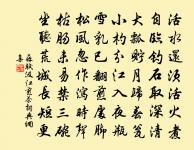 活水還須活火煮
自臨釣石取深清
大瓢貯月歸春甕
小杓分江入夜瓶
雪乳已翻煎處腳
松風忽作瀉時聲
枯腸未易禁三碗
坐聽荒城長短更
蘇軾汲江煎茶
集